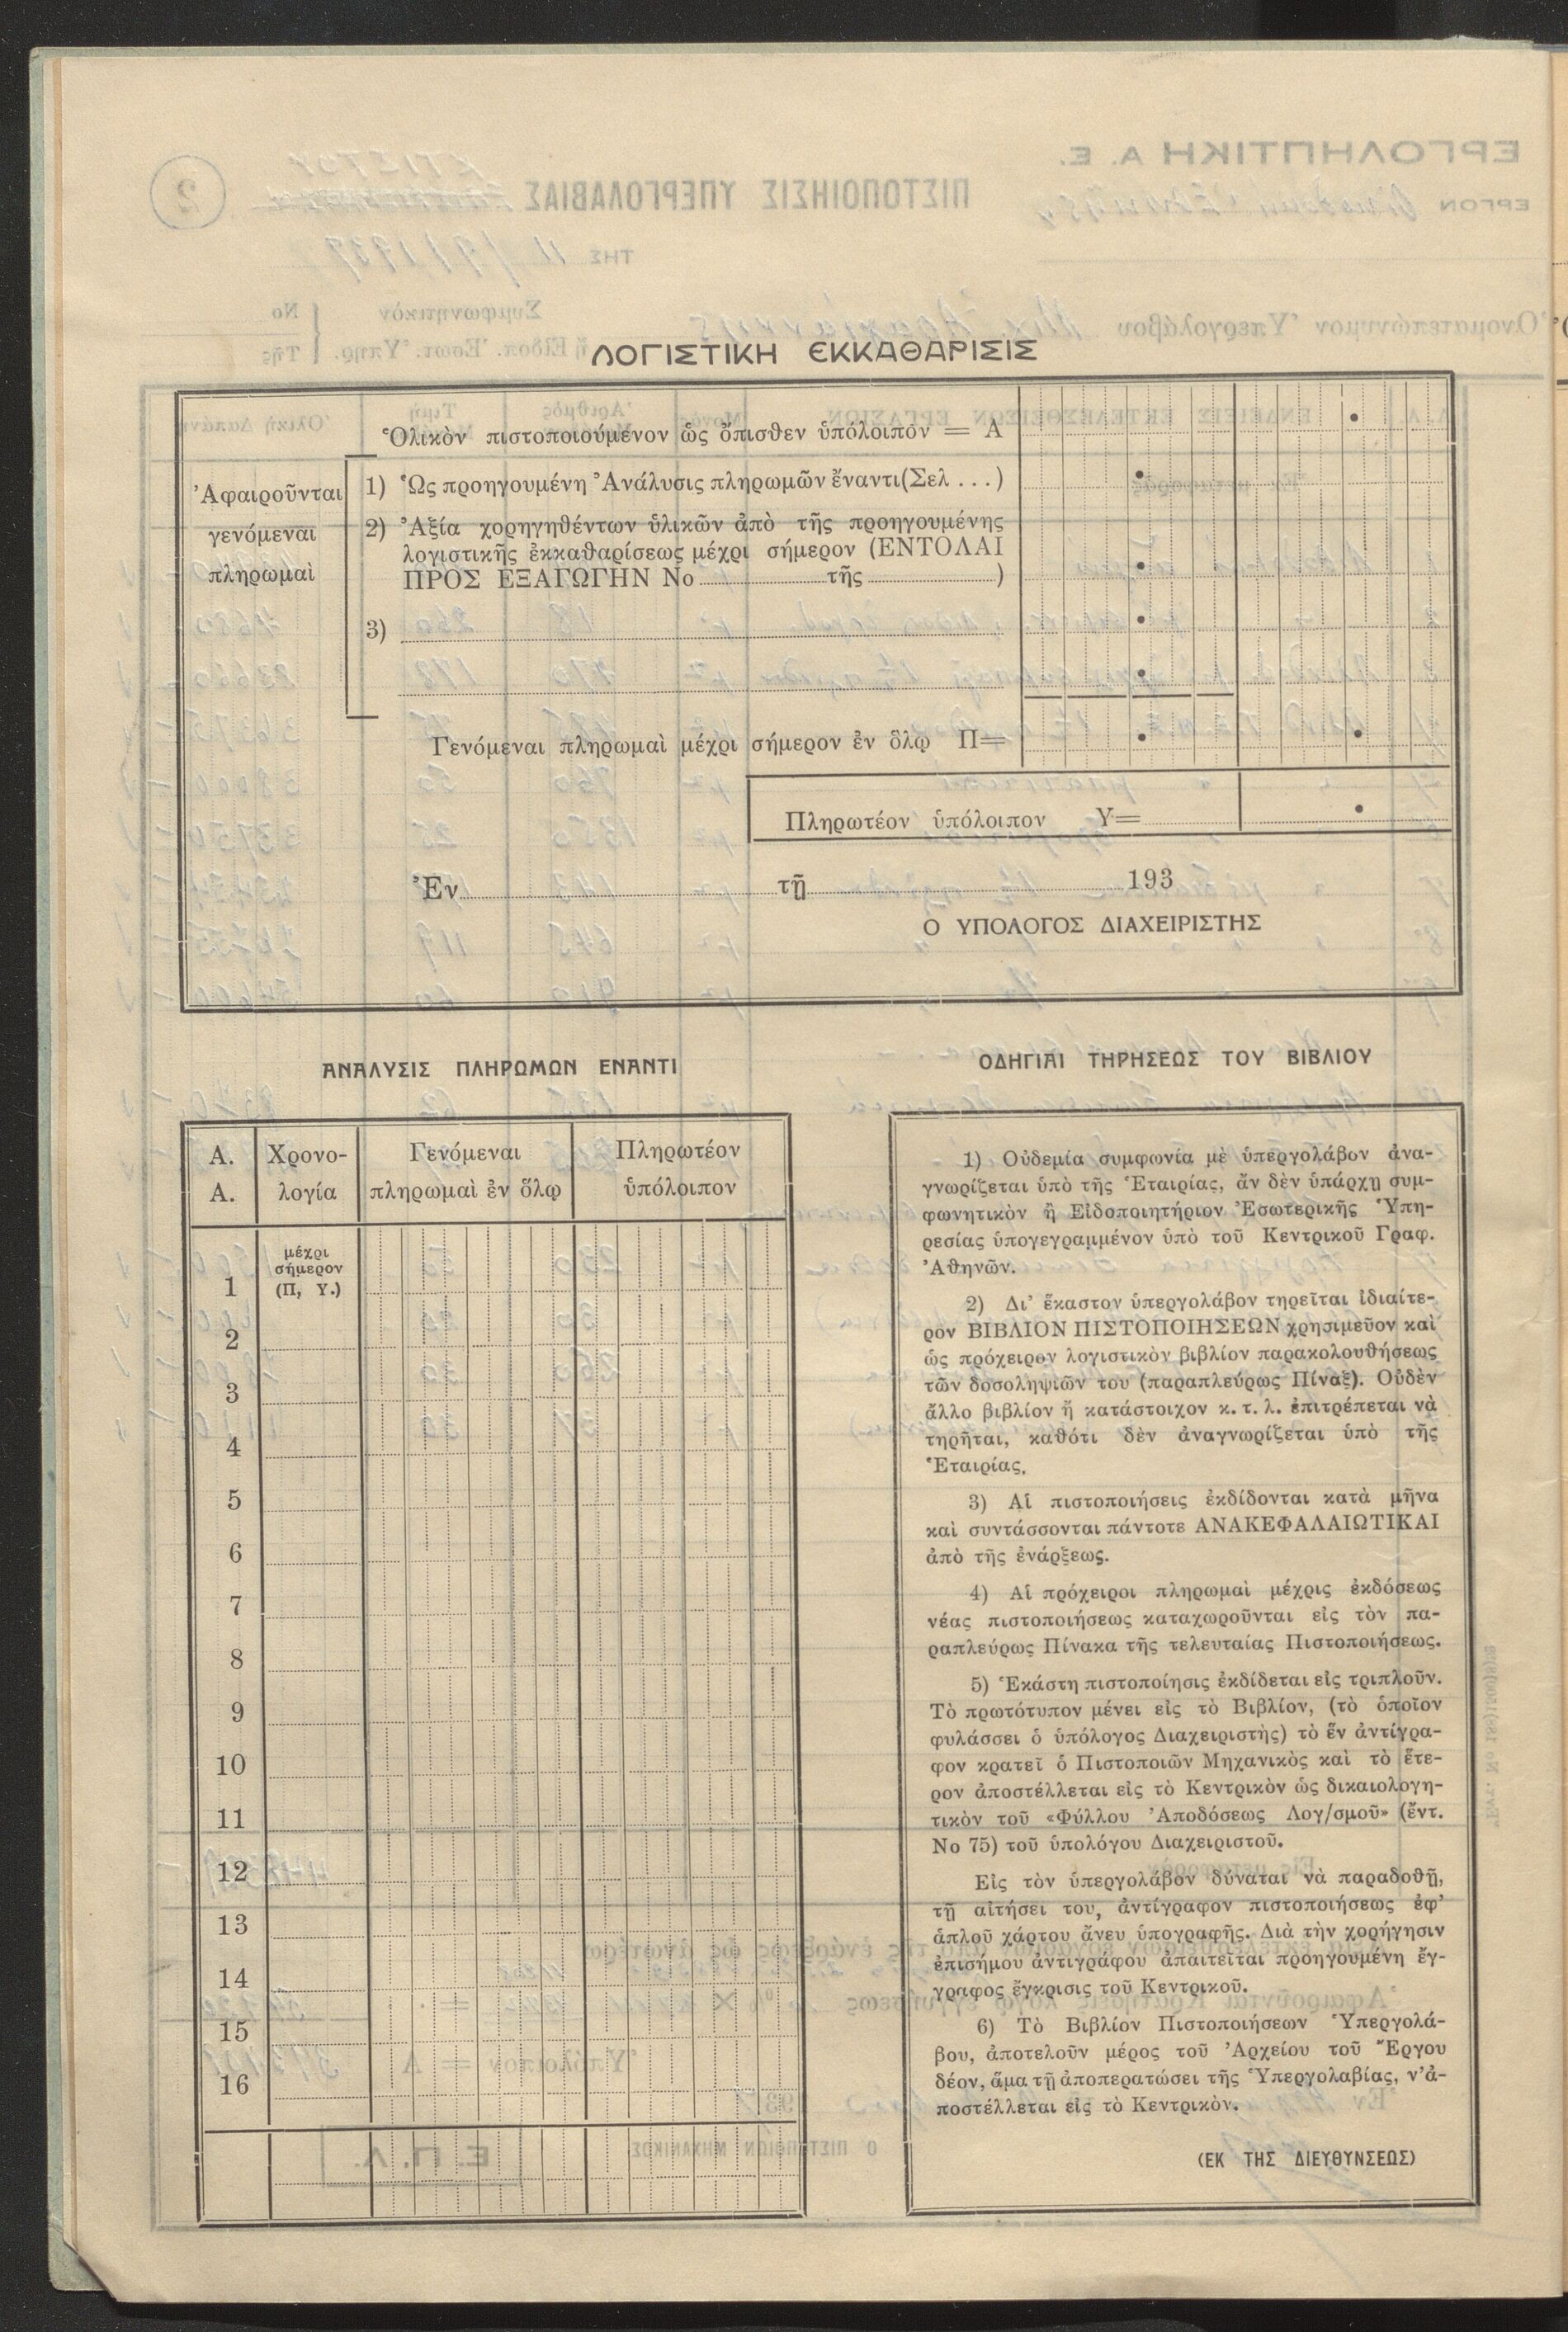 ΛΟΓΙΣΤΙΚΗ ΕΚΚΑΘΑΡΙΣΙΣ
Ὁλικὸν πιστοποιούμενον ὡς ὄπισθεν ὑπόλοιπον = Α
Ἀφαιροῦνται
γενόμεναι
πληρωμαὶ
1) Ὡς προηγουμένη Ἀνάλυσις πληρωμῶν ἔναντι (Σελ ...)
2) Ἀξία χορηγηθέντων ὑλικῶν ἀπὸ τῆς προηγουμένης
λογιστικῆς ἐκκαθαρίσεως μέχρι σήμερον (ΕΝΤΟΛΑΙ
ΠΡΟΣ ΕΞΑΓΩΓΗΝ Νο ........ τῆς ........ )
3)
Γενόμεναι πληρωμαὶ μέχρι σήμερον ἐν ὅλῳ Π=
Πληρωτέον ὑπόλοιπον Υ=
Ἐν ........ τῇ ........ 193
Ο ΥΠΟΛΟΓΟΣ ΔΙΑΧΕΙΡΙΣΤΗΣ
ΑΝΑΛΥΣΙΣ ΠΛΗΡΩΜΩΝ ΕΝΑΝΤΙ
Α. Χρονο- Γενόμεναι Πληρωτέον
Α. λογία πληρωμαὶ ἐν ὅλῳ ὑπόλοιπον
μέχρι
σήμερον
1 (Π, Υ.)
2
3
4
5
6
7
8
9
10
11
12
13
14
15
16
ΟΔΗΓΙΑΙ ΤΗΡΗΣΕΩΣ ΤΟΥ ΒΙΒΛΙΟΥ
1) Οὐδεμία συμφωνία μὲ ὑπεργολάβον ἀνα-
γνωρίζεται ὑπὸ τῆς Ἑταιρίας, ἄν δὲν ὑπάρχῃ συμ-
φωνητικὸν ἢ Εἰδοποιητήριον Ἐσωτερικῆς Ὑπη-
ρεσίας ὑπογεγραμμένον ὑπὸ τοῦ Κεντρικοῦ Γραφ.
Ἀθηνῶν.
2) Δι' ἕκαστον ὑπεργολάβον τηρεῖται ἰδιαίτε-
ρον ΒΙΒΛΙΟΝ ΠΙΣΤΟΠΟΙΗΣΕΩΝ χρησιμεῦον καὶ
ὡς πρόχειρον λογιστικὸν βιβλίον παρακολουθήσεως
τῶν δοσοληψιῶν του (παραπλεύρως Πίναξ). Οὐδὲν
ἄλλο βιβλίον ἢ κατάστοιχον κ. τ. λ. ἐπιτρέπεται νὰ
τηρῆται, καθότι δὲν ἀναγνωρίζεται ὑπὸ τῆς
Ἑταιρίας.
3) Αἱ πιστοποιήσεις ἐκδίδονται κατὰ μῆνα
καὶ συντάσσονται πάντοτε ΑΝΑΚΕΦΑΛΑΙΩΤΙΚΑΙ
ἀπὸ τῆς ἐνάρξεως.
4) Αἱ πρόχειροι πληρωμαὶ μέχρις ἐκδόσεως
νέας πιστοποιήσεως καταχωροῦνται εἰς τὸν πα-
ραπλεύρως Πίνακα τῆς τελευταίας Πιστοποιήσεως.
5) Ἑκάστη πιστοποίησις ἐκδίδεται εἰς τριπλοῦν.
Τὸ πρωτότυπον μένει εἰς τὸ Βιβλίον, (τὸ ὁποῖον
φυλάσσει ὁ ὑπόλογος Διαχειριστὴς) τὸ ἓν ἀντίγρα-
φον κρατεῖ ὁ Πιστοποιῶν Μηχανικὸς καὶ τὸ ἕτε-
ρον ἀποστέλλεται εἰς τὸ Κεντρικὸν ὡς δικαιολογη-
τικὸν τοῦ «Φύλλου Ἀποδόσεως Λογ/σμοῦ» (ἔντ.
Νο 75) τοῦ ὑπολόγου Διαχειριστοῦ.
Εἰς τὸν ὑπεργολάβον δύναται νὰ παραδοθῇ,
τῇ αἰτήσει του, ἀντίγραφον πιστοποιήσεως ἐφ'
ἁπλοῦ χάρτου ἄνευ ὑπογραφῆς. Διὰ τὴν χορήγησιν
ἐπισήμου ἀντιγράφου ἀπαιτεῖται προηγουμένη ἔγ-
γραφος ἔγκρισις τοῦ Κεντρικοῦ.
6) Τὸ Βιβλίον Πιστοποιήσεων Ὑπεργολά-
βου, ἀποτελοῦν μέρος τοῦ Ἀρχείου τοῦ Ἔργου
δέον, ἅμα τῇ ἀποπερατώσει τῆς Ὑπεργολαβίας, ν' ἀ-
ποστέλλεται εἰς τὸ Κεντρικὸν.
(ΕΚ ΤΗΣ ΔΙΕΥΘΥΝΣΕΩΣ)